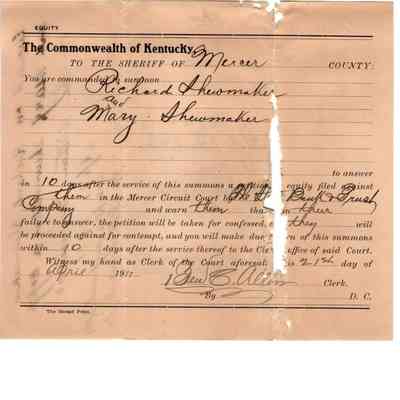 EQUITY
The Commonwealth of Kentucky,
TO THE SHERIFF OF Mercer COUNTY:
You are commanded to summon Richard Shewmaker
and
Mary Shewmaker
to answer
in 10 days after the service of this summons a petition equity filed against
them in the Mercer Circuit Court by The Bank & Trust
Company and warn them tha their
failure to answer, the petition will be taken for confessed, they will
be proceeded against for contempt, and you will make due n of this summons
within 10 days after the service thereof to the Clerk office of said Court.
Witness my hand as Clerk of the Court aforesa is 21st day of
April 191
Clerk.
By D. C.
The Herald Print.